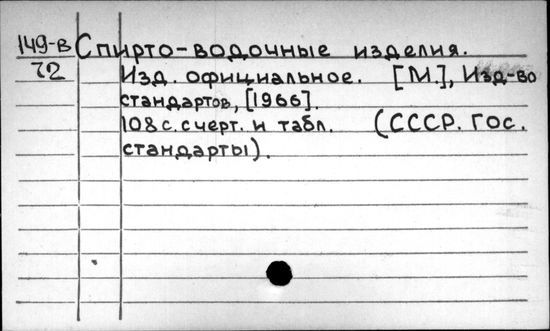 149-в Спирто-водочные изделия.
72 Изд. официальное. [М.], Изд-во
стандартов, [1966].
108 с. с черт. и табл. (СССР. Гос.
стандарты).